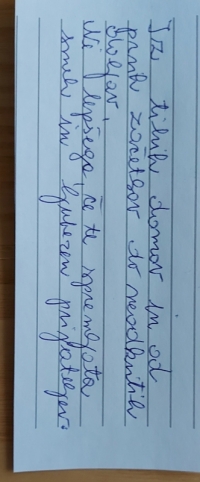 Iz tihih domov in od
prvih začetkov do neodkritih
obljav,
Ni lepšega če te spremljata
smeh in ljubezen prijateljev.